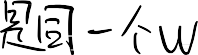 是同一个W